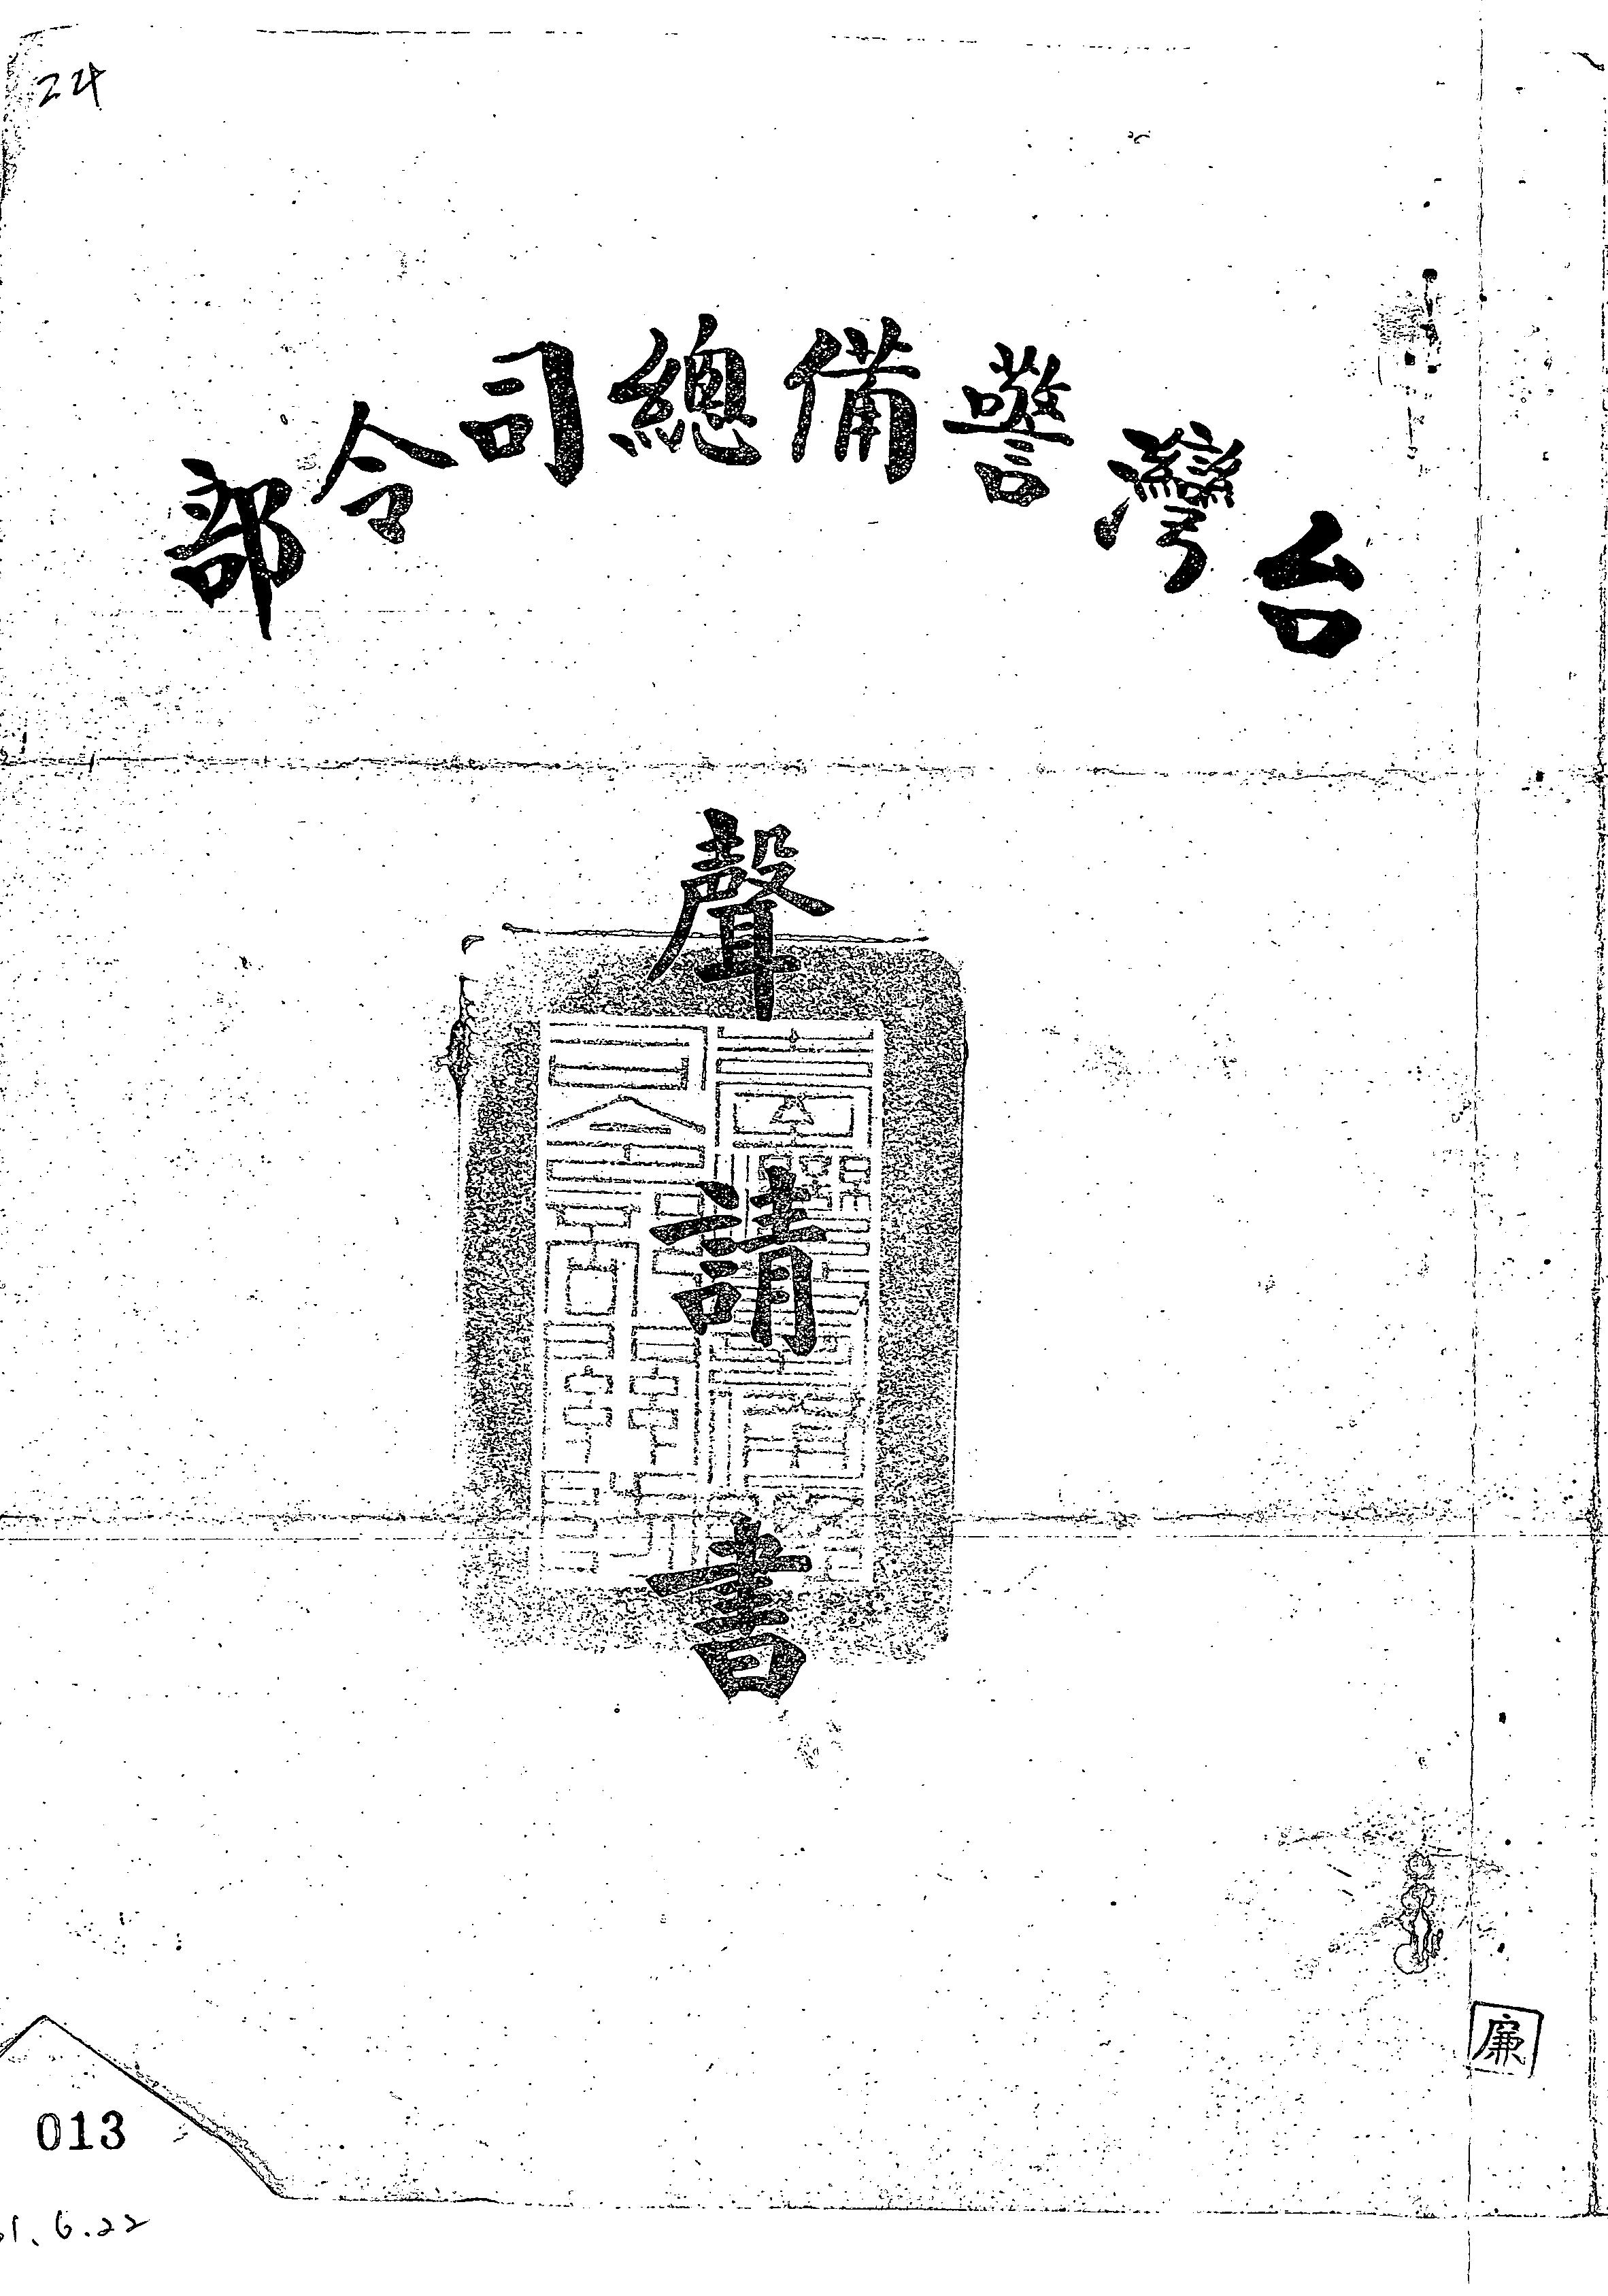 24
台灣警備總司令部
聲
請
書
廉
013
61.6.22